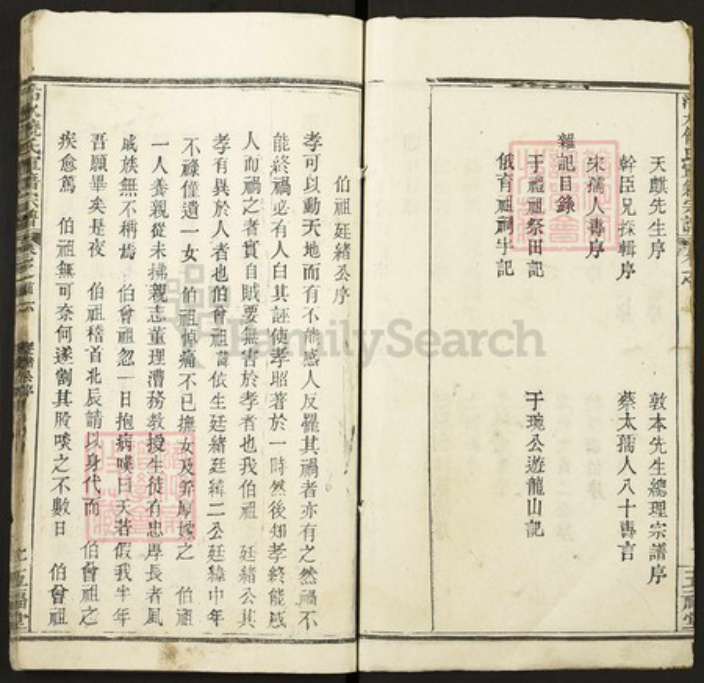 天麒先生序
敦本先生總理宗譜序
幹臣兄採輯序
蔡太孺人八十壽言
宋孺人壽序
雜記目錄
于禮祖祭田記
于琬公遊龍山記
俄育祖祠宇記
五福堂
伯祖廷緒公序
孝可以動天地而有不能感人反罹其禍者亦有之然禍不
能終禍必有人白其誣使孝昭著於一時然後知孝終能感
人而禍之者實自賊要無害於孝者也我伯祖 廷緒公其
孝有異於人者也伯曾祖 依生廷緒廷緯二公廷緯中年
不祿僅遺一女 伯祖悼痛不已撫女及笄厚 之 伯祖
一人養親從未拂親志董理漕務教授生徒有忠厚長者風
戚族無不稱焉 伯曾祖忽一日抱病嘆曰天若假我半年
吾願畢矣是夜 伯祖稽首北辰請以身代而 伯曾祖之
疾愈篤 伯祖無可奈何遂割其股啖之不數日 伯曾祖
五福堂
FamilySearch